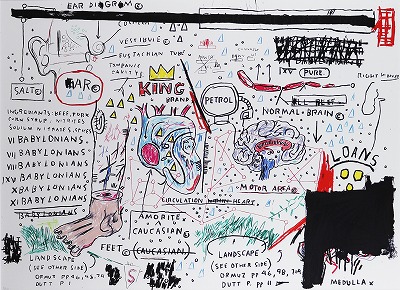 EAR DIOGROM ©
VESTIBULE ©
EUSTACHIAN TUBE
TYMPANIC
CAVITY
SALT ©
EAR ©
KING
BRAND
PETROL
XV PURE
NORMAL BRAIN ©
INGREDIENTS: BEEF, PORK
CORN SYRUP NITRITES
SODIUM NITRATES, SPICES
VI BABYLONIANS
VII BABYLONIANS
VIII BABYLONIANS
IXV BABYLONIANS
X BABYLONIANS
XI BABYLONIANS
BABYLONIANS
LOANS
MOTOR AREA
CIRCULATION HEART
AMORITE
CAUCASIAN ©
FEET © (CAUCASIAN)
LANDSCAPE
(SEE OTHER SIDE)
ORMUZ PP 46, 48, 
DUTT P.1
S
LANDSCAPE
(SEE OTHER SIDE)
ORMUZ PP 46, 48, 
DUTT P. PP II
MEDULLA